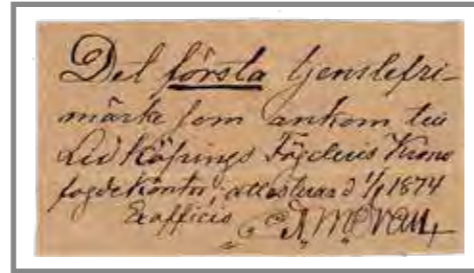 Det första tjenstefri-
märke som ankom till
Lidköpings Fögderis Krono
fogdekontor, attesteras d 1/1 1874
Exofficio